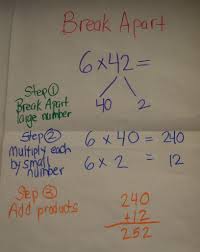 Break Apart
6 x 42 =
Step ①
Break Apart
large number
40 2
Step ②
Multiply each
by small
number
6 x 40 = 240
6 x 2 = 12
Step ③
Add products
240
+12
252